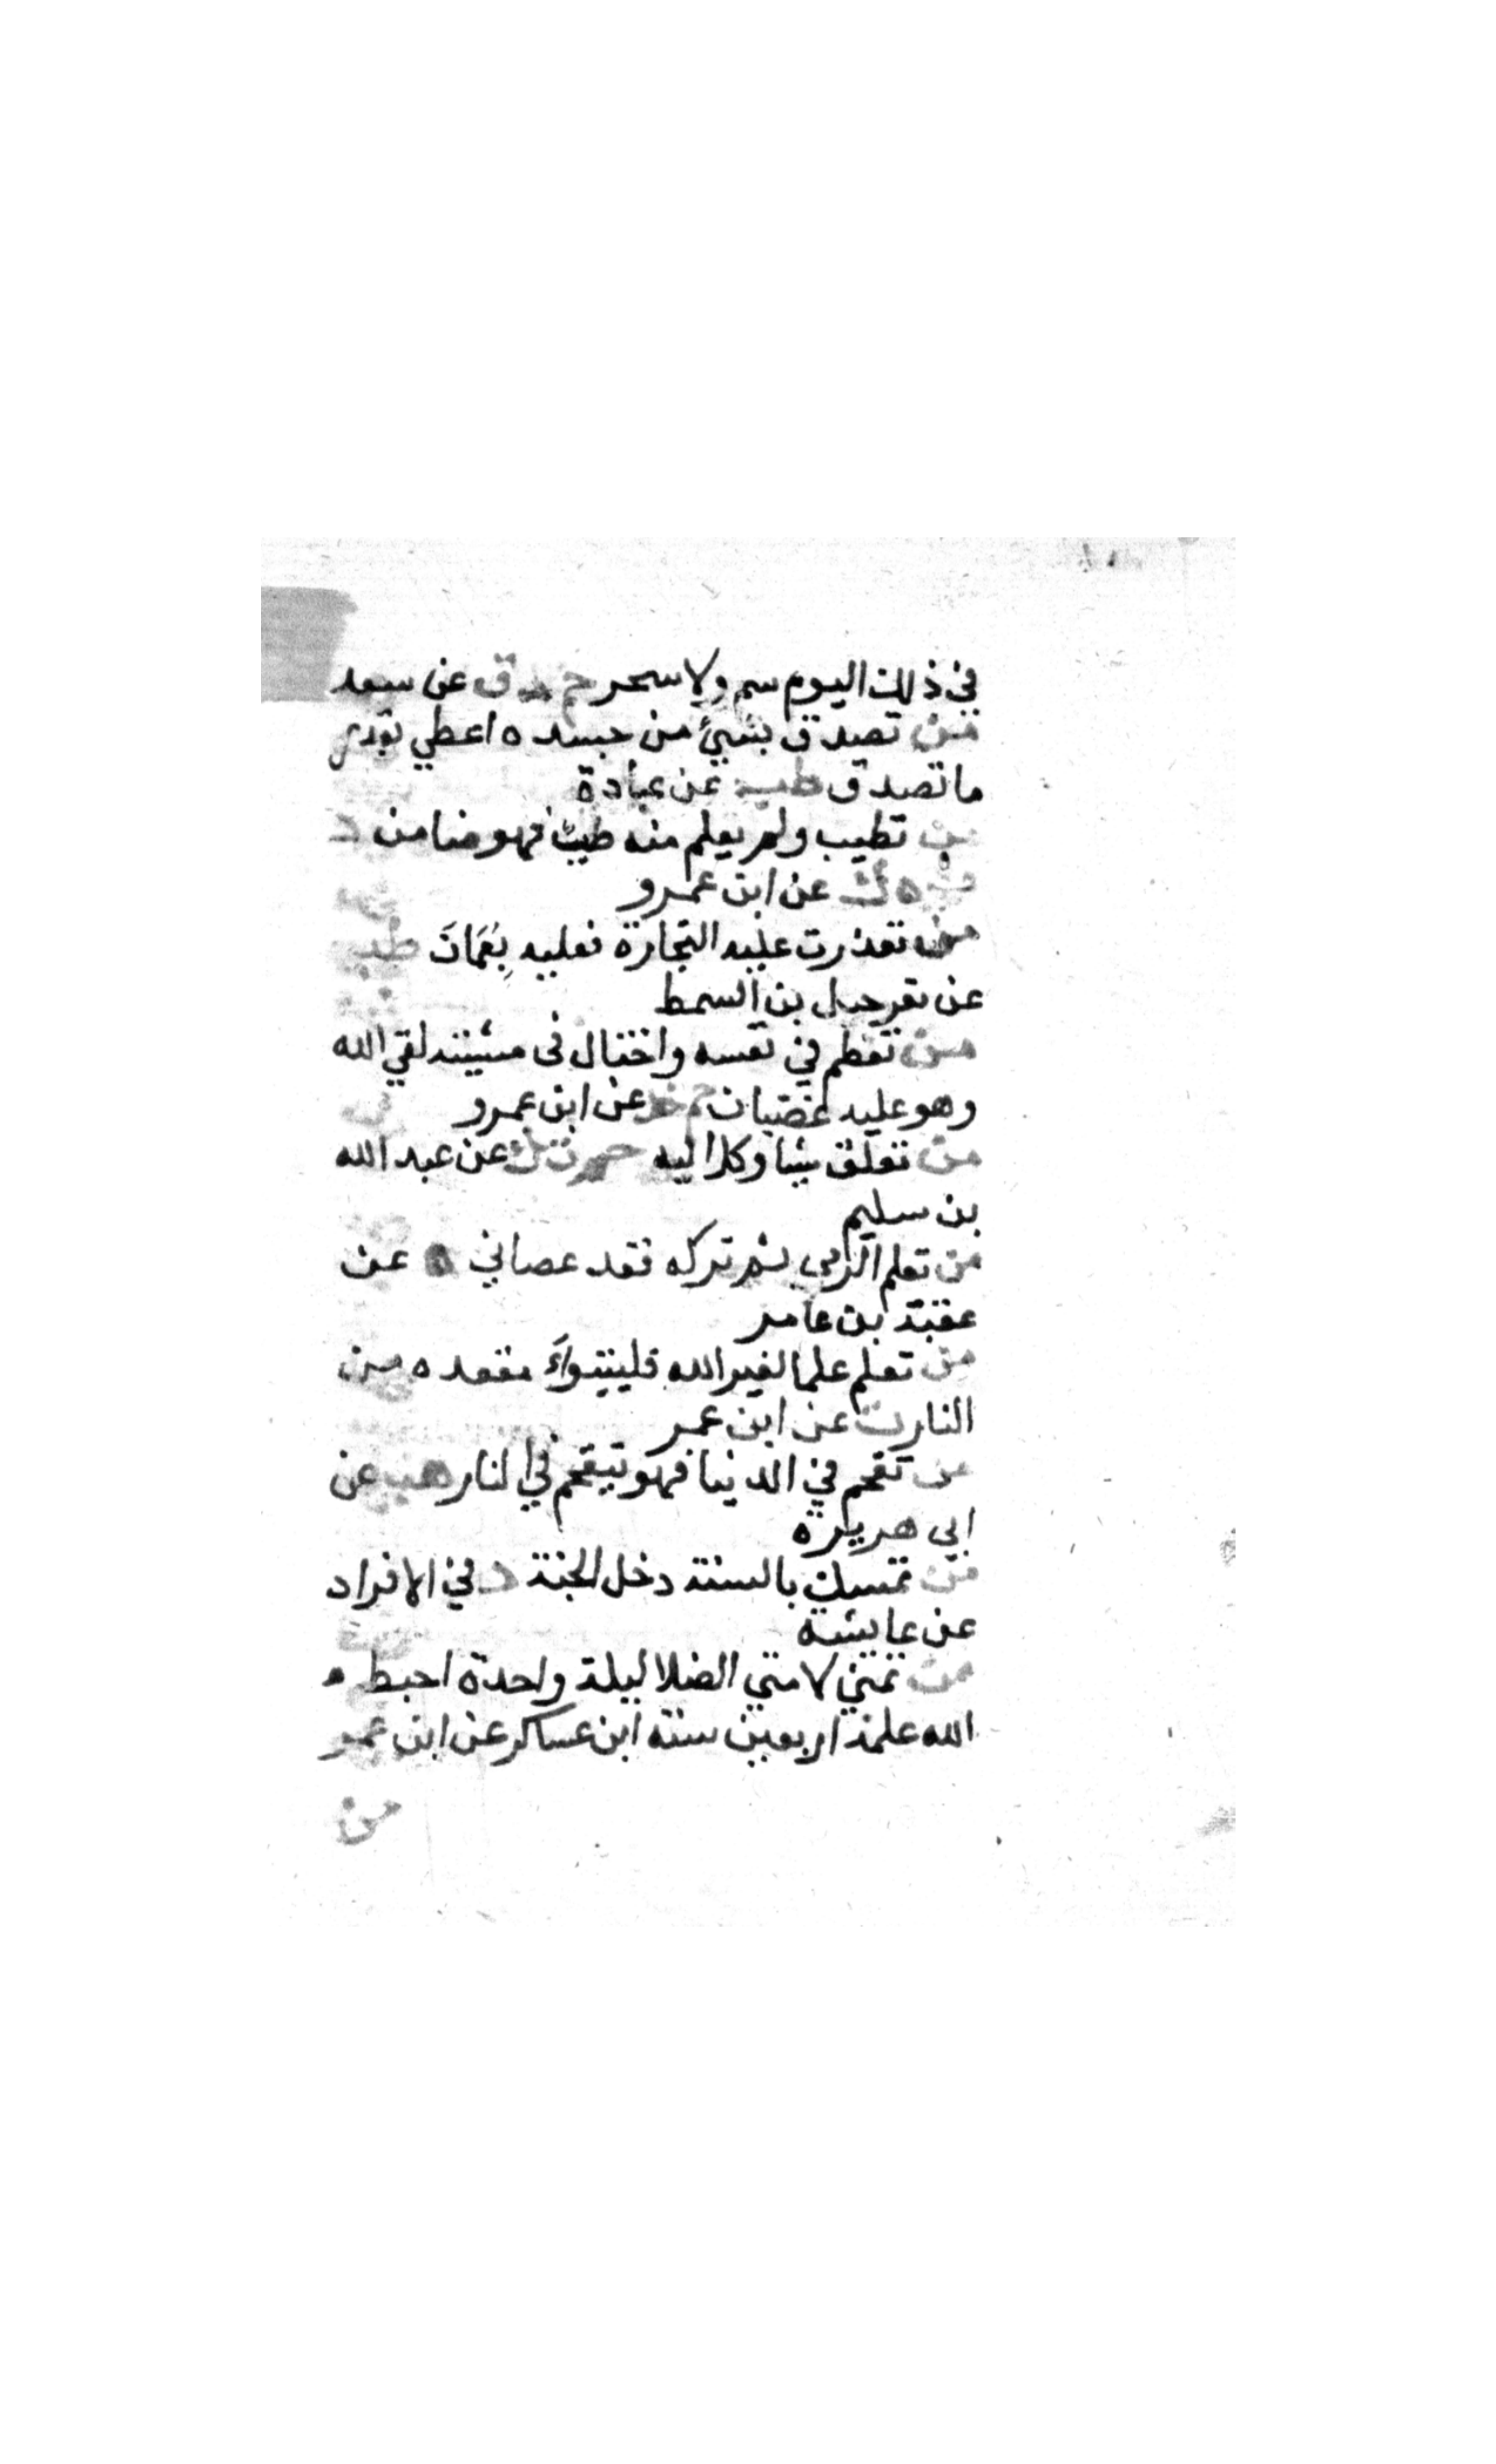 في ذلك اليوم سم ولا سحر حم د ق عن سعد
من تصدق بشيئ من جسده اعطي بقدر
ما تصدق طب عن عبادة
من تطيب ولم يعلم منه طبٌ فهو ضامن د
ن ه ك عن ابن عمرو
من تعذرت عليه التجارة فعليه بِعُمَانَ طب
عن شرحبيل بن السمط
من تعظم في نفسه واختال في مشيته لقي الله
وهو عليه غضبان حم خد عن ابن عمرو
من تعلق شيا وكل اليه حم ت ك عن عبد الله
بن سليم
من تعلم الرمي ثم تركه فقد عصاني ه عن
عقبة بن عامر
من تعلم علما لغير الله فليتبوأ مقعده من
النار ت عن ابن عمر
من تقحم في الدنيا فهو يتقحم في النار هب عن
ابي هريرة
من تمسك بالسنة دخل الجنة د في الافراد
عن عايشة
من تمني لامتي الغلا ليلة واحدة احبط
الله عمله اربعين سنة ابن عساكر عن ابن عمر
من